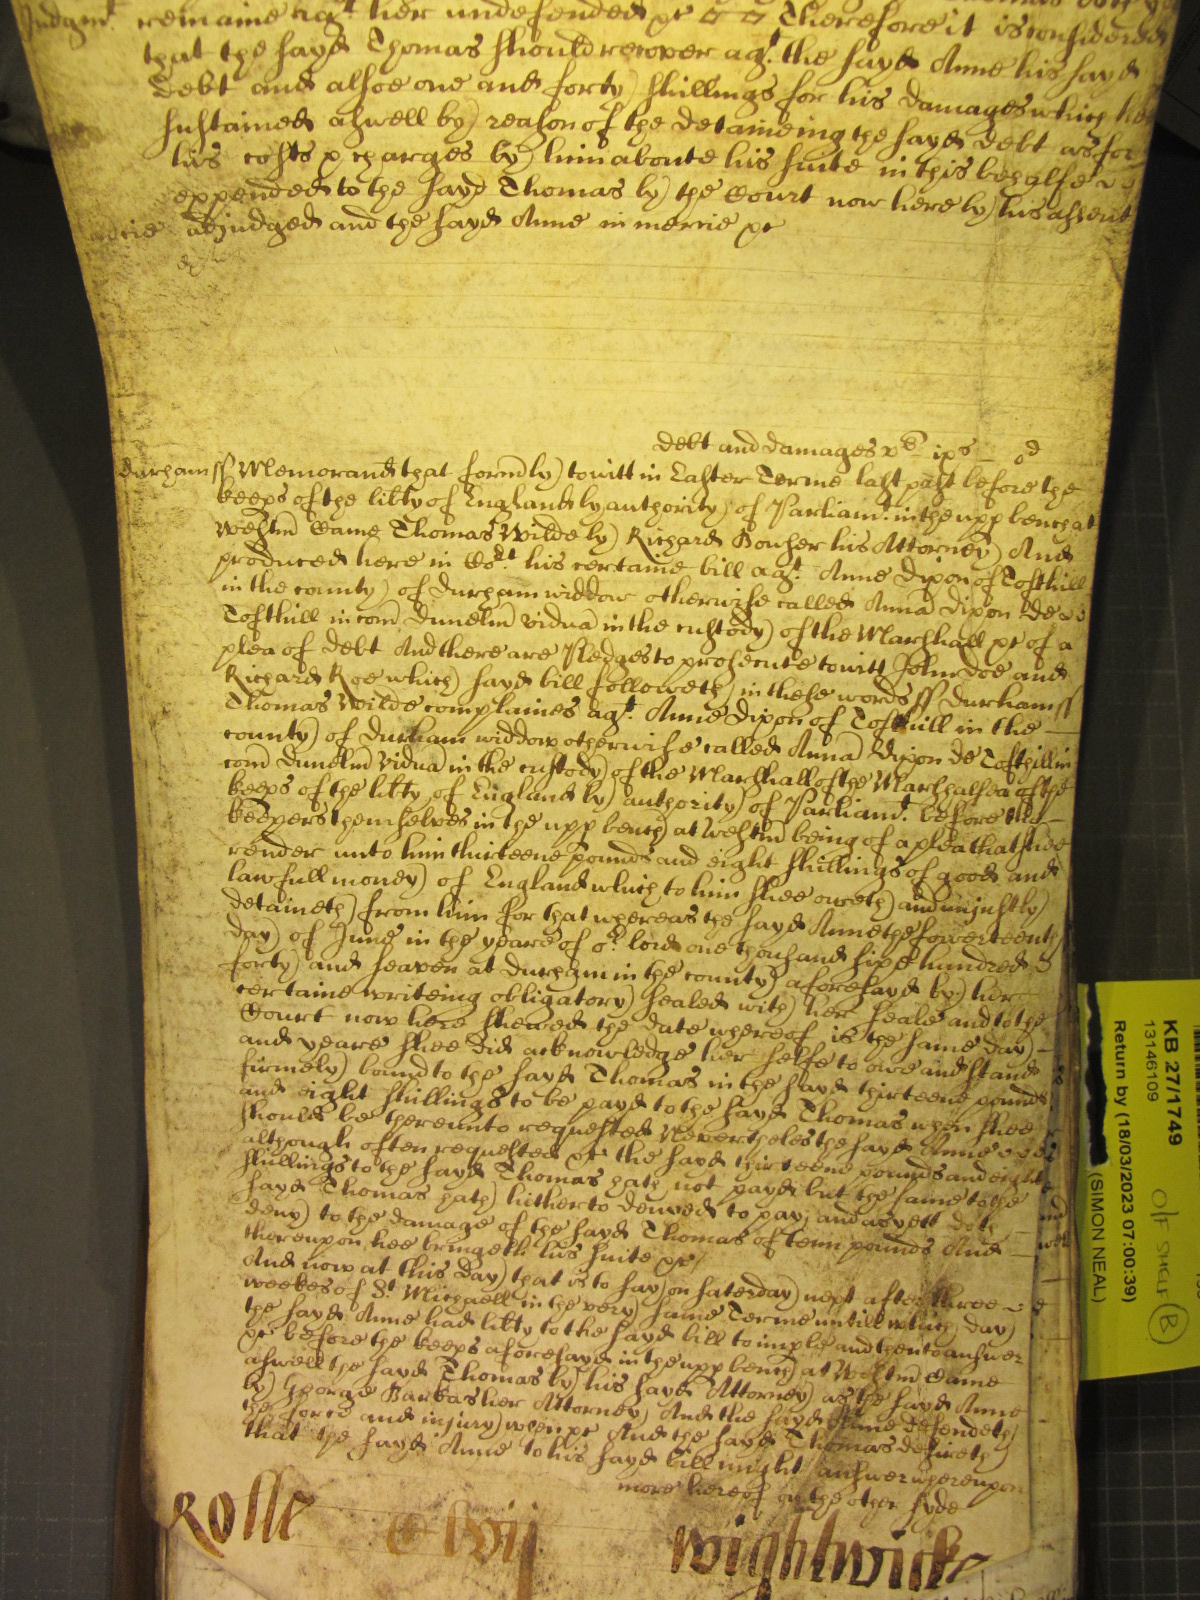 Judgmt remaine agt. her undefended &c Therefore it is considered
that the sayd Thomas should recover agt. the sayd Anne his sayd
debt and alsoe one and forty shillings for his damages which hee
sustained aswell by reason of the detaineing the sayd debt as for
his costs & charges by him aboute his suite in this behalfe
expended to the sayd Thomas by the Court now here by his assent
adjudged and the sayd Anne in mercie &c
debt and damages
durham ss Memorand that formdly to witt in Easter Terme last past before the
keeps of the libty of England by authority of Parliamt. in the upp bench at
Westm Came Thomas Wilde by Richard Bowser his Attorney And
produced here in Cort. his certaine bill agt. Anne Dixon of Tofthill
in the county of durham widdow otherwise called Anna Dixon de
Tofthill in com Dunelm vidua in the custody of the Marshall &c of a
plea of debt And there are Pledges to prosecute to witt John Doe and
Richard Roe which sayd bill followeth in these words ss Durham ss
Thomas Wilde complaines agt. Anne Dixon of Tofthill in the
county of durham widdow otherwise called Anna Dixon de Tofthill in
com Dunelm vidua in the custody of the Marshall of the Marshalsea of the
keeps of the libty of England by authority of Parliamt. before the
keepers themselves in the upp bench at Westm being of a plea that shee
render unto him thirteene pounds and eight shillings of good and
lawfull money of England which to him shee oweth and unjustly
detaineth from him for that whereas the sayd Anne the fowerteenth
day of June in the yeare of or. lord one thousand sixe hundred
forty and seaven at durham in the county aforesayd by her
certaine writeing obligatory sealed with her seale and to the
Court now here shewed the date whereof is the same day
and yeare shee did acknowledge her selfe to owe and stand
firmely bound to the sayd Thomas in the sayd thirteene pounds
and eight shillings to be payd to the sayd Thomas when shee
should be thereunto requested Nevertheles the sayd Anne
although often requested &c the sayd thirteene pounds and eight
shillings to the sayd Thomas hath not payd but the same to the
sayd Thomas hath hitherto denyed to pay and as yett doth
deny to the damage of the sayd Thomas of tenn pounds And
thereupon hee bringeth his suite &c
And now at this day that is to say on saterday next after three
weekes of St. Michaell in the very same Terme untill which day
the sayd Anne had libty to the sayd bill to imple and then to answer
&c before the keeps aforesayd in the upp bench at Westm Came
aswell the sayd Thomas by his sayd Attorney as the sayd Anne
by George Barkas her Attorney And the sayd Anne defendeth
the force and injury when &c And the sayd Thomas desireth
that the sayd Anne to his sayd bill might answer whereupon
more hereof on the other syde
Rolle Wightwicke
KB 27/1749
13146109
Return by (18/03/2023 07:00:39)
(SIMON NEAL)
O/F SHELF B